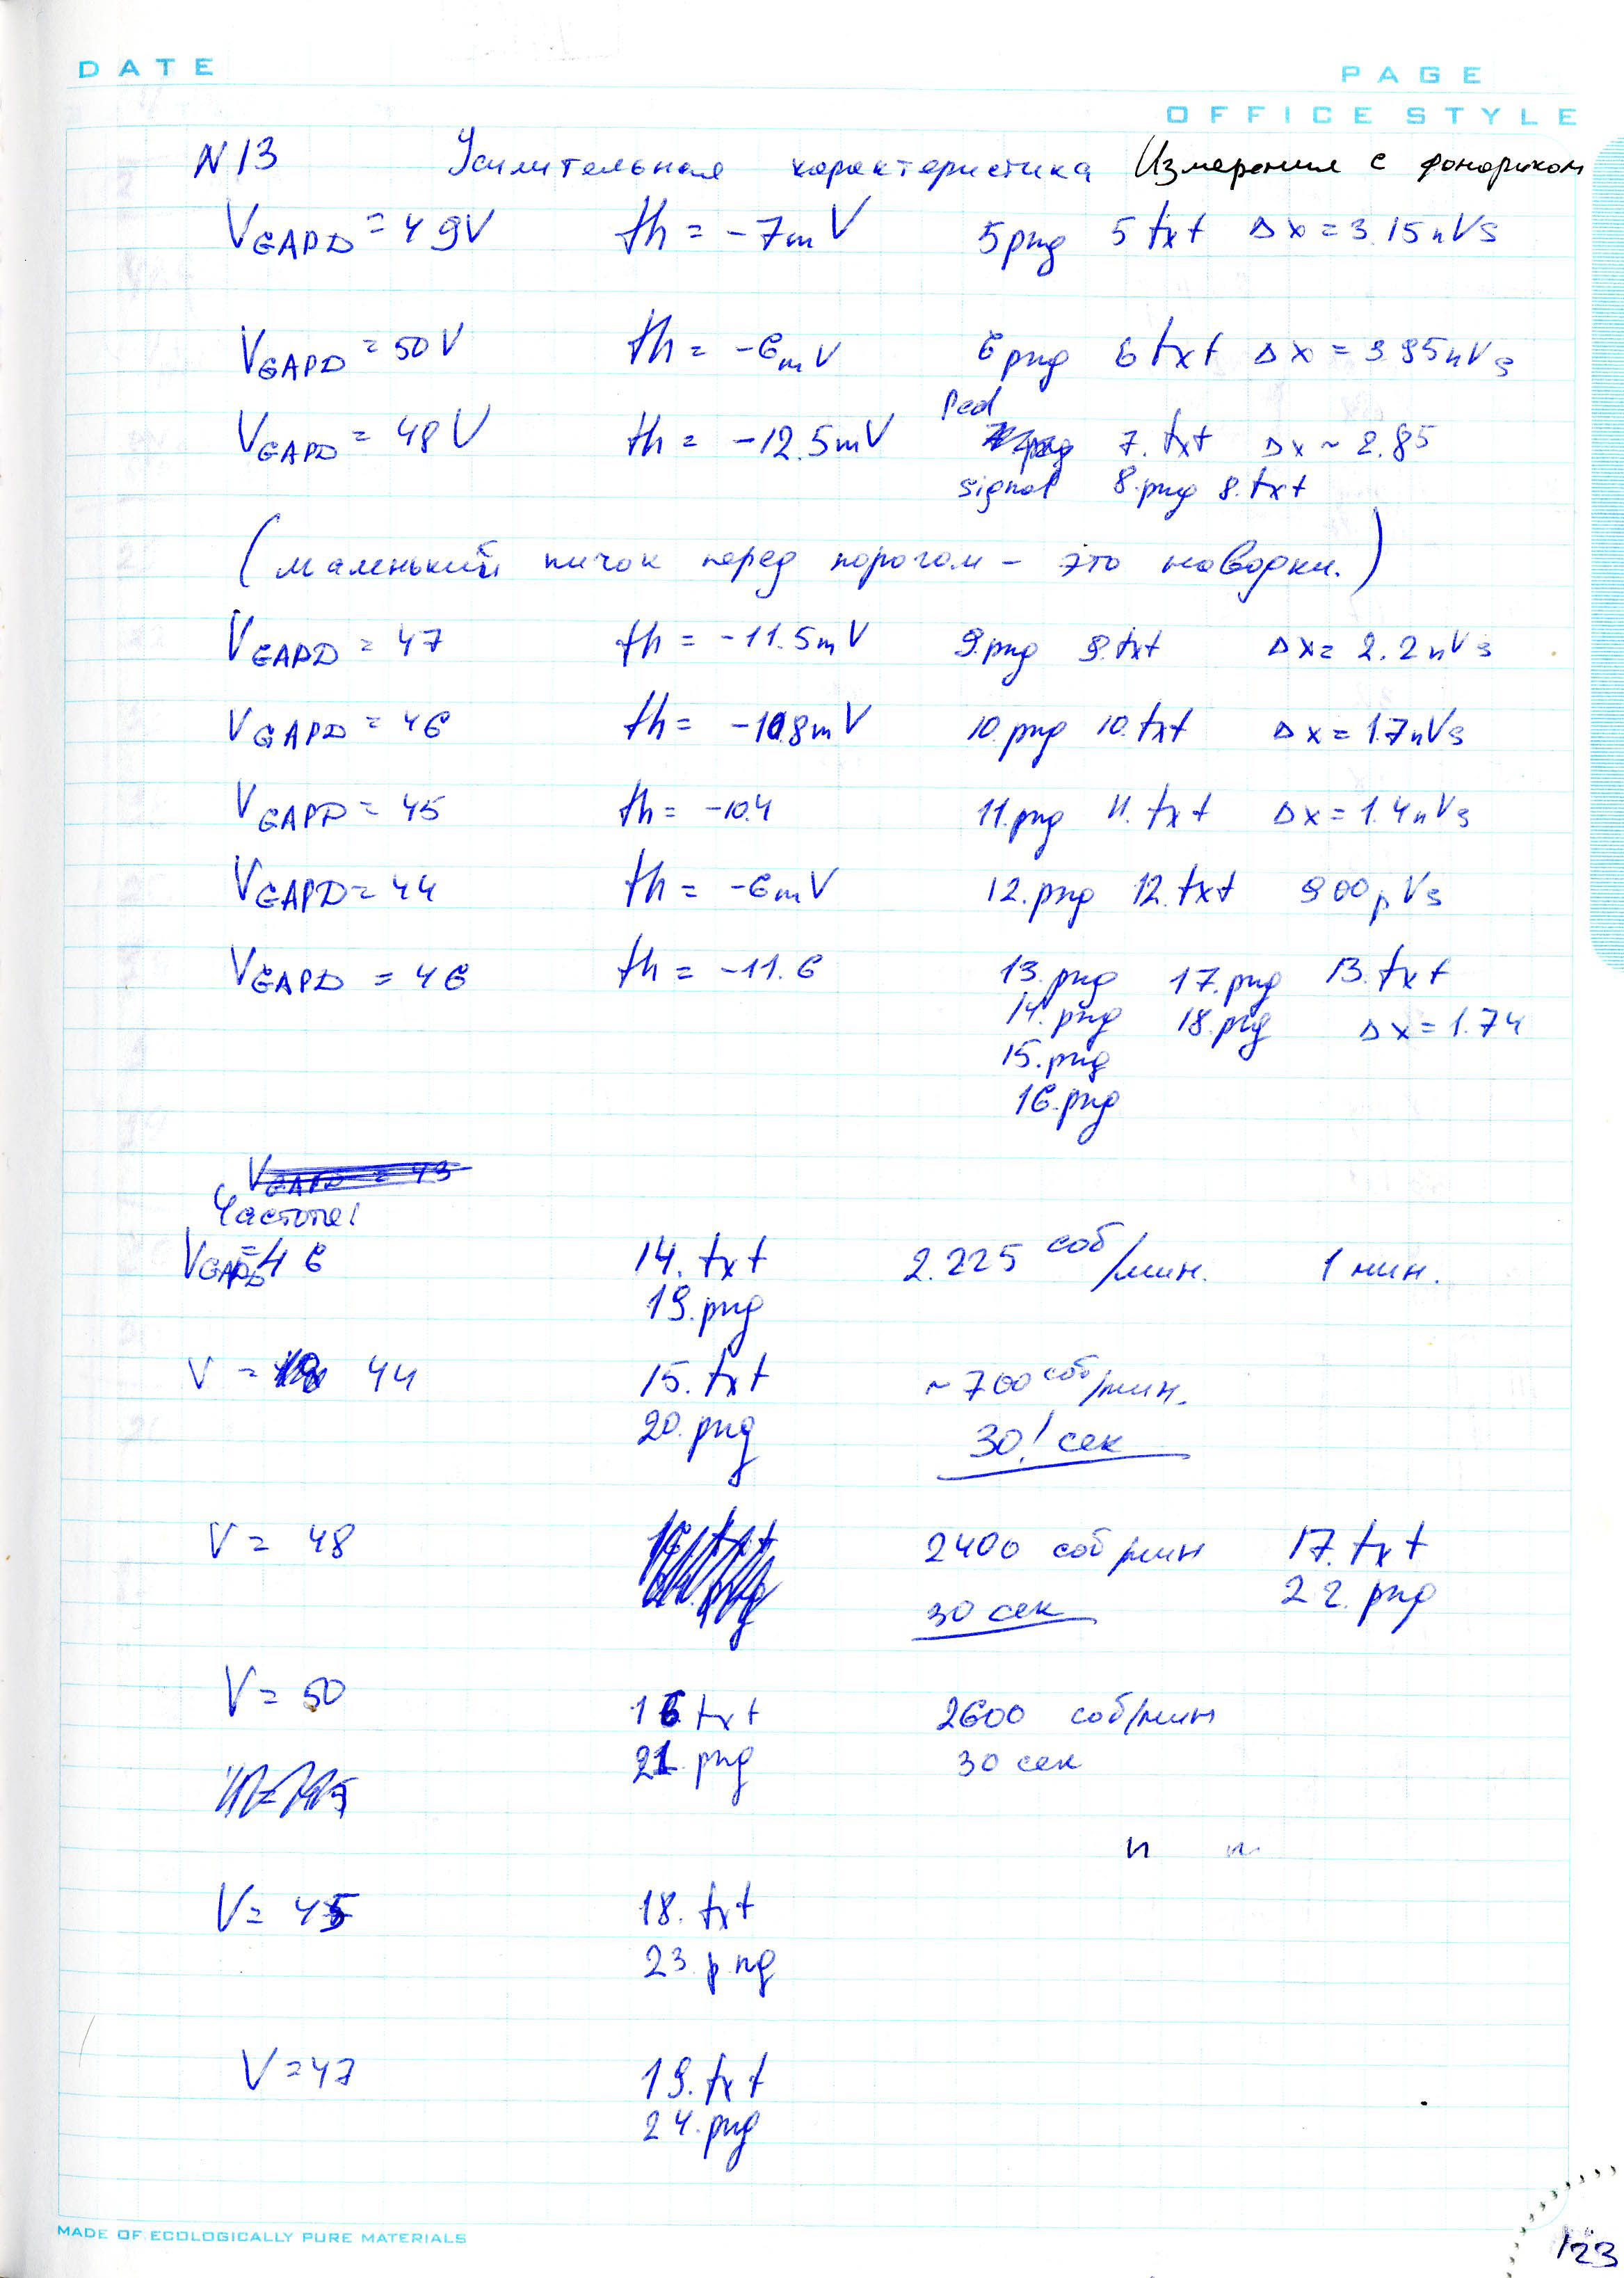 DATE
PAGE
OFFICE STYLE
N 13 Усилительная характеристика Измерения с фонариком
V GAPD = 49V th = -7mV 5png 5txt Δx = 3.15nVs
V GAPD = 50V th = -6mV 6png 6txt Δx = 3.95nVs
Ped
V GAPD = 48V th = -12.5mV 7.txt Δx ~ 2.85
signal 8.png 8.txt
(маленький пичок перед порогом - это наводки.)
V GAPD = 47 th = -11.5mV 9.png 9.txt Δx = 2.2nVs
V GAPD = 46 th = -10.8mV 10.png 10.txt Δx = 1.7nVs
V GAPD = 45 th = -10.4 11.png 11.txt Δx = 1.4nVs
V GAPD = 44 th = -6mV 12.png 12.txt 900pVs
V GAPD = 46 th = -11.6 13.png 17.png 13.txt
14.png 18.png Δx = 1.74
15.png
16.png
V GAPD = 43
Частоты
V GAPD = 46 14.txt 2.225 соб/мин. 1 мин.
19.png
V = 44 15.txt ~700 соб/мин.
20.png 30! сек
V = 48 2400 соб/мин 17.txt
30 сек 22.png
V = 50 16 txt 2600 соб/мин
21 png 30 сек
V = 45 18.txt
23.png
V = 47 19.txt
24.png
MADE OF ECOLOGICALLY PURE MATERIALS
123